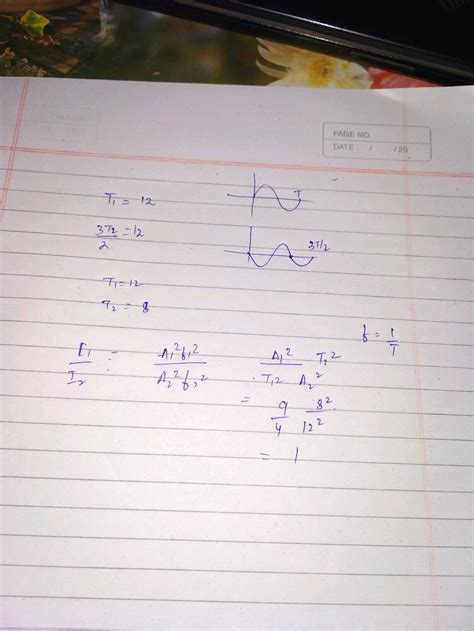 PAGE NO.
DATE : / /20
T₁ = 12
T
3T₂/2 = 12
3T/2
T₁ = 12
T₂ = 8
f = 1/T
I₁/I₂ = A₁²f₁²/A₂²f₂² A₁²/T₁² T₂²/A₂²
= 9/4 8²/12²
= 1